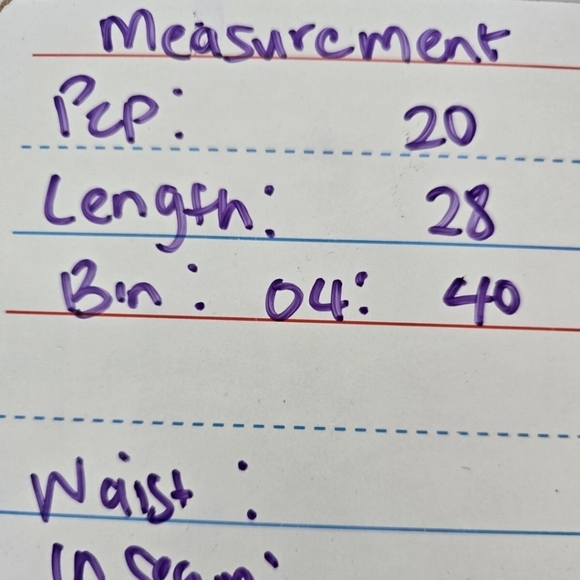 Measurement
PzP: 20
Length: 28
Bin: 04: 40
Waist:
Inseam: